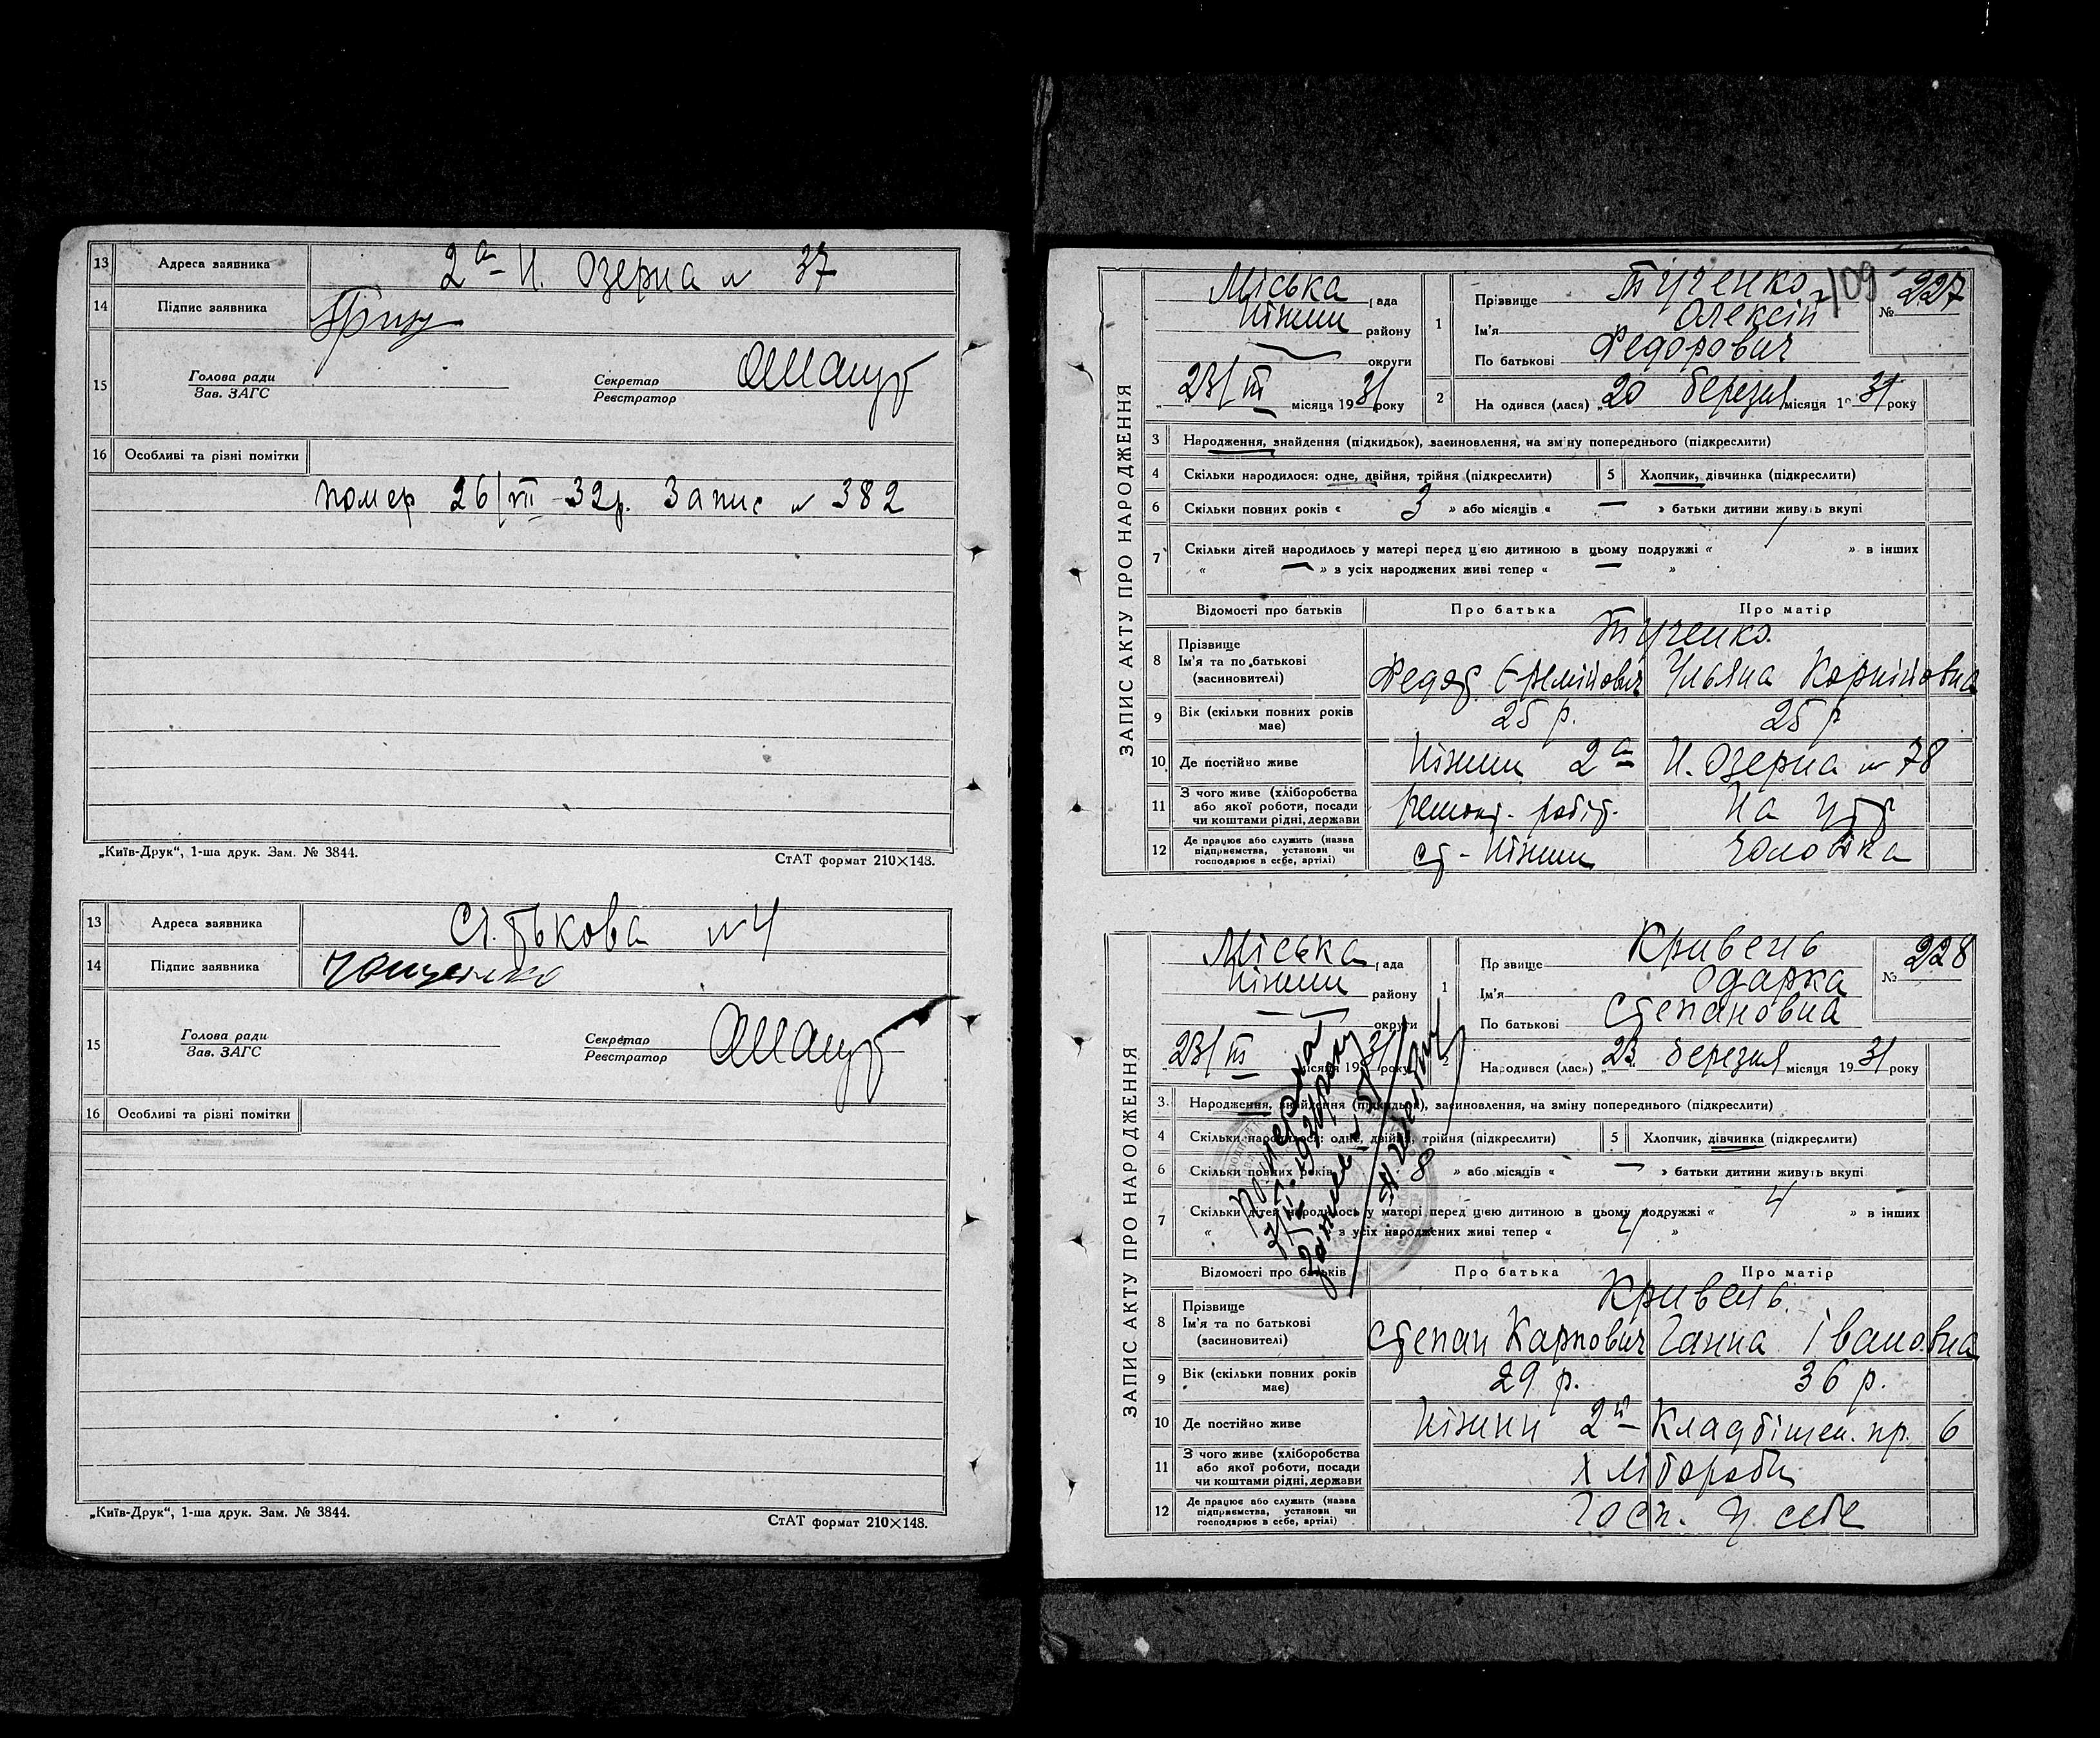 13 Адреса заявника 2а Н. Озерна № 37
14 Підпис заявника
15 Голова ради
Зав. ЗАГС
Секретар
Реєстратор
16 Особливі та різні помітки
помер 26/VII-32р. Запис № 382
„Київ-Друк“, 1-ша друк. Зам. № 3844.
СтАТ формат 210×148.
13 Адреса заявника № 4
14 Підпис заявника
15 Голова ради
Зав. ЗАГС
Секретар
Реєстратор
16 Особливі та різні помітки
„Київ-Друк“, 1-ша друк. Зам. № 3844.
СтАТ формат 210×148.
ЗАПИС АКТУ ПРО НАРОДЖЕННЯ
Міська рада
Ніжин району
округи
„23/III місяця 1931 року
1 Прізвище Тученко
Ім'я Олексій
По батькові Федорович
109
№ 227
2 Народився (лася) „20 березня місяця 1931 року
3 Народження, знайдення (підкидьок), засиновлення, на зміну попереднього (підкреслити)
4 Скільки народилося: одне, двійня, трійня (підкреслити)
5 Хлопчик, дівчинка (підкреслити)
6 Скільки повних років « 3 » або місяців « — » батьки дитини живуть вкупі
7 Скільки дітей народилось у матері перед цією дитиною в цьому подружжі « 1 » в інших
« — » з усіх народжених живі тепер « — »
Відомості про батьків Про батька Про матір
8 Прізвище
Ім'я та по батькові
(засиновителі)
Тученко
Федор Єремійович Ульяна Корнійовна
9 Вік (скільки повних років має) 25 р. 25 р
10 Де постійно живе Ніжин 2а Н. Озерна № 78
11 З чого живе (хліборобства
або якої роботи, посади
чи коштами рідні, держави
ремонт. робіт. На утр
12 Де працює або служить (назва
підприємства, установи чи
господарює в себе, артілі)
ст. Ніжин чоловіка
ЗАПИС АКТУ ПРО НАРОДЖЕННЯ
Міська рада
Ніжин району
округи
„23/III місяця 1931 року
1 Прізвище Кривень
Ім'я Одарка
По батькові Степановна
№ 228
2 Народився (лася) „23 березня місяця 1931 року
3 Народження, знайдення (підкидьок), засиновлення, на зміну попереднього (підкреслити)
4 Скільки народилося: одне, двійня, трійня (підкреслити)
5 Хлопчик, дівчинка (підкреслити)
6 Скільки повних років 8 » або місяців « — » батьки дитини живуть вкупі
7 Скільки дітей народилось у матері перед цією дитиною в цьому подружжі « 4 » в інших
« з усіх народжених живі тепер « 4 »
Померла
1934 року
Відомості про батьків Про батька Про матір
8 Прізвище
Ім'я та по батькові
(засиновителі)
Кривень.
Степан Карпович Ганна Івановна
9 Вік (скільки повних років має) 29 р. 36 р.
10 Де постійно живе Ніжин 2й Кладбіщен. пр. 6
11 З чого живе (хліборобства
або якої роботи, посади
чи коштами рідні, держави
Хлібороби
12 Де працює або служить (назва
підприємства, установи чи
господарює в себе, артілі)
Госп. у себе